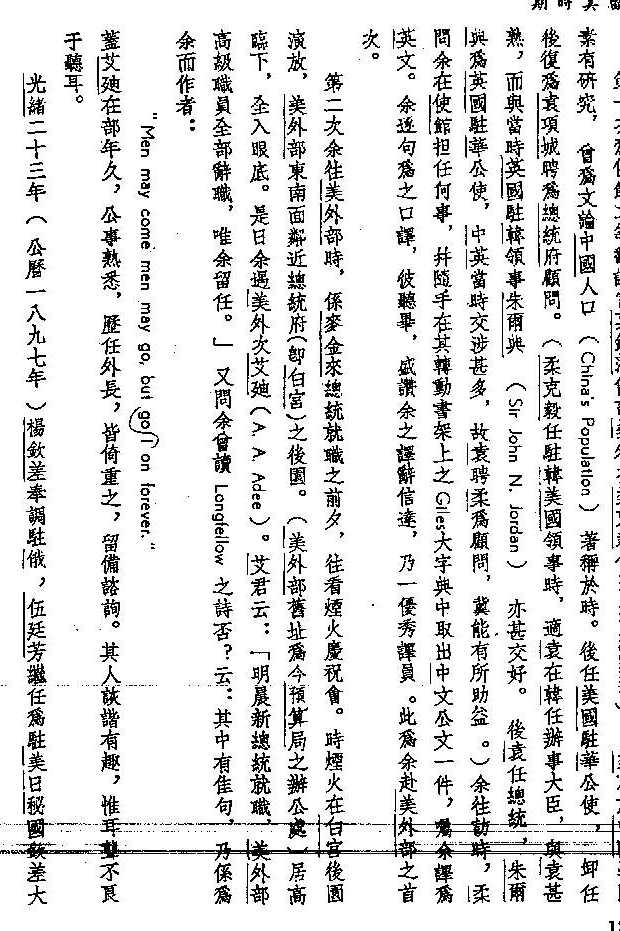 時期
素有研究,曾爲文論中國人口(China's Population)著稱於時。後任美國駐華公使,卸任
後復爲袁項城聘爲總統府顧問。(柔克毅任駐韓美國領事時,適袁在韓任辦事大臣,與袁甚
熟,而與當時英國駐韓領事朱爾與(Sir John N. Jordan)亦甚交好。後袁任總統,朱爾
與爲英國駐華公使,中英當時交涉甚多,故袁聘柔爲顧問,冀能有所助益。)余往訪時,柔
問余在使館担任何事,幷隨手在其轉動書架上之Giles大字典中取出中文公文一件,囑余譯爲
英文。余逐句爲之口譯,彼聽畢,盛讚余之譯辭信達,乃一優秀譯員。此爲余赴美外部之首
次。
第二次余往美外部時,係麥金來總統就職之前夕,往看煙火慶祝會。時煙火在白宮後園
演放,美外部東南面鄰近總統府(卽白宮)之後園。(美外部舊址爲今預算局之辦公處)居高
臨下,全入眼底。是日余遇美外次艾廸(A. A. Adee)。艾君云:「明晨新總統就職,美外部
高級職員全部辭職,唯余留任。」又問余曾讀Longfellow之詩否?云:其中有佳句,乃係爲
余而作者:
"Men may come men may go, but go I on forever."
蓋艾廸在部年久,公事熟悉,歷任外長,皆倚重之,留備諮詢。其人詼諧有趣,惟耳聾不良
于聽耳。
光緒二十三年(公曆一八九七年)楊欽差奉調駐俄,伍廷芳繼任爲駐美日秘國欽差大